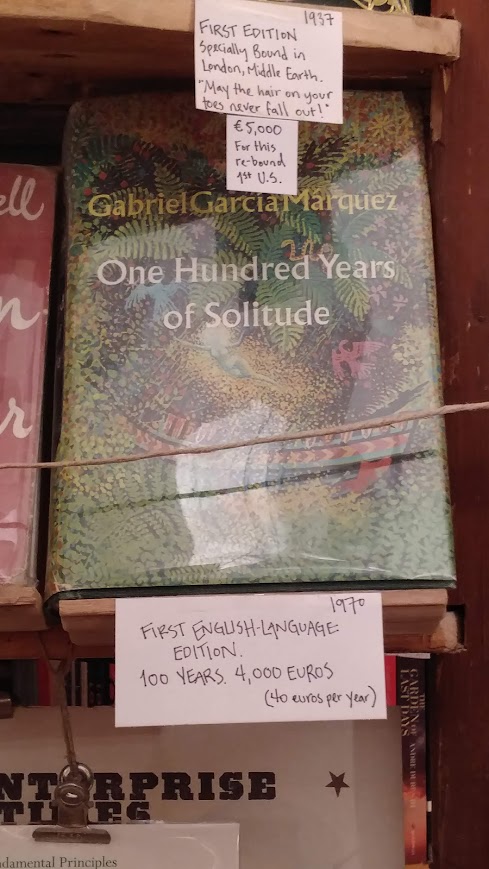 1937
FIRST EDITION
Specially Bound in
London, Middle Earth.
"May the hair on your
toes never fall out!"
€5,000
For this
re-bound
1st U.S.
ell
n
r
Gabriel García Márquez
One Hundred Years
of Solitude
1970
FIRST ENGLISH-LANGUAGE
EDITION.
100 YEARS. 4,000 EUROS
(40 euros per year)
THE
GARDEN OF
LAST DAYS
ANDRE DUBUS III
NTERPRISE
TIMES
ndamental Principles